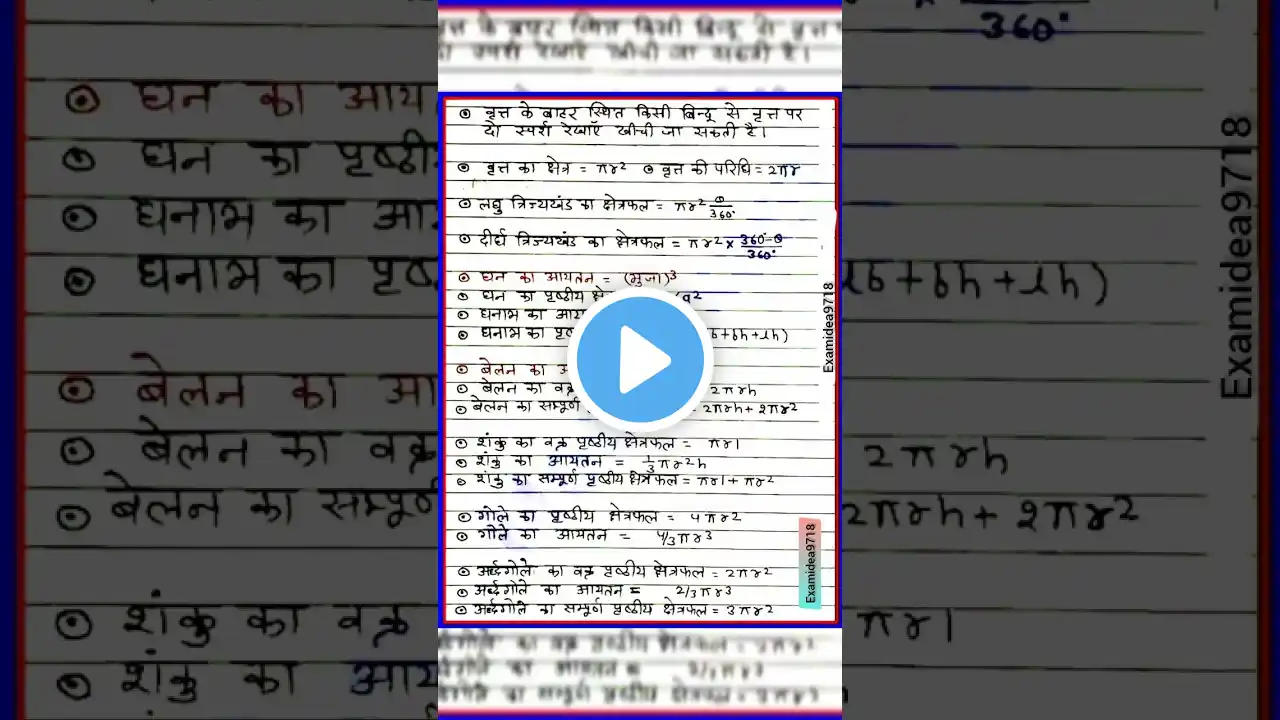 वृत्त के बाहर स्थित किसी बिन्दू से वृत्त पर
दो स्पर्श रेखाएँ खीची जा सकती है।
वृत्त का क्षेत्र = πr² वृत्त की परिधि = 2πr
लघु त्रिज्यखंड का क्षेत्रफल = πr² θ/360°
दीर्घ त्रिज्यखंड का क्षेत्रफल = πr² × 360°-θ/360°
घन का आयतन = (भुजा)³
घन का पृष्ठीय a²
घनाभ का
घनाभ का +bh+lh)
बेलन का
बेलन का वक्र 2πrh
बेलन का सम्पूर्ण = 2πrh + 2πr²
शंकु का वक्र पृष्ठीय क्षेत्रफल = πrl
शंकु का आयतन = 1/3 πr²h
शंकु का सम्पूर्ण पृष्ठीय क्षेत्रफल = πrl + πr²
गोले का पृष्ठीय क्षेत्रफल = 4πr²
गोले का आयतन = 4/3πr³
अर्द्धगोले का वक्र पृष्ठीय क्षेत्रफल = 2πr²
अर्द्धगोले का आयतन = 2/3πr³
अर्द्धगोले का सम्पूर्ण पृष्ठीय क्षेत्रफल = 3πr²
Examidea9718
Examidea9718
360°
घन का
घन का
घनाभ का
घनाभ का
+bh+lh)
बेलन का
बेलन का वक्र
2πrh
बेलन का सम्पूर्ण
2πrh + 2πr²
शंकु का वक्र
πrl
शंकु का
Examidea9718